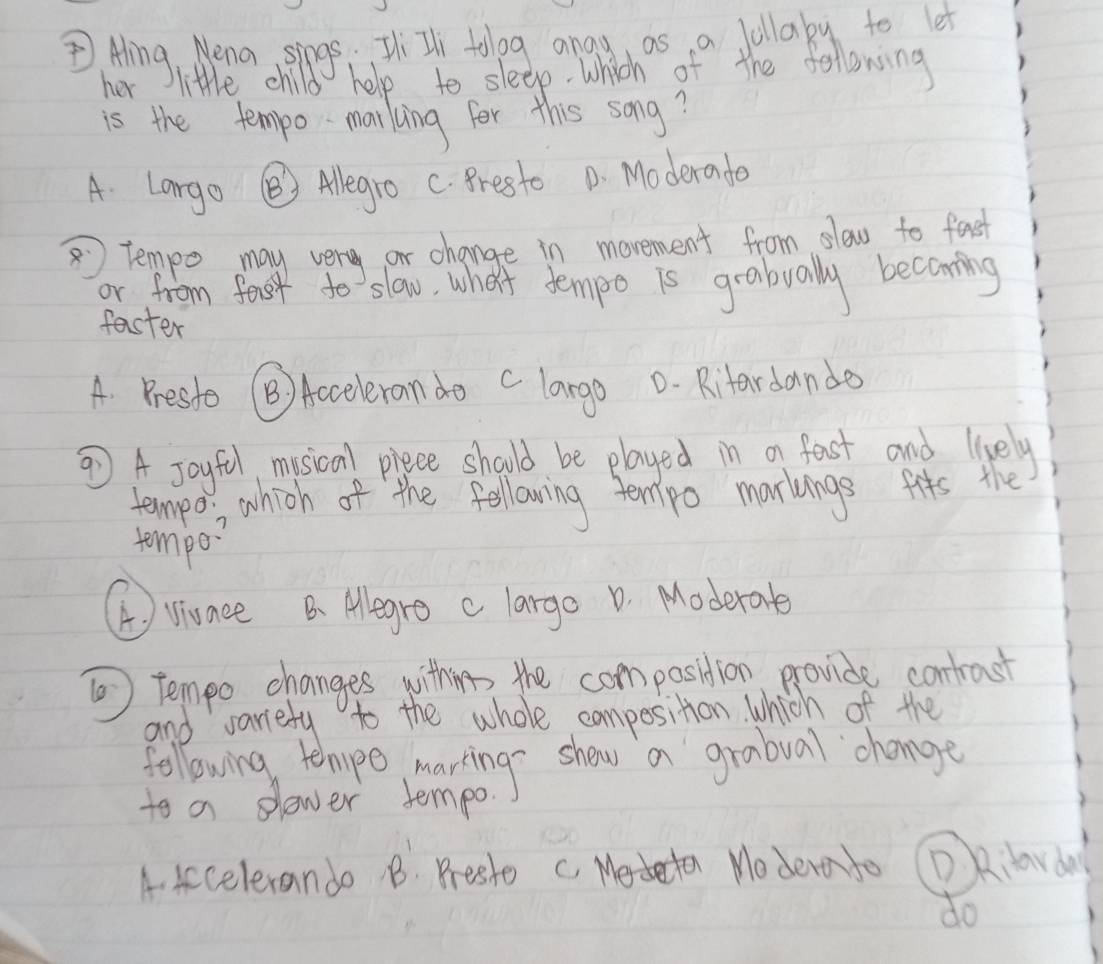 7) Aling Nena sings. Ili Ili tolog anay, as a lullaby to let
her little child help to sleep. Which of the following
is the tempo marking for this song?
A. Largo B) Allegro C. Presto D. Moderato
8) Tempo may very or change in movement from slow to fast
or from fast to slow. What tempo is grabually becoming
faster
A. Presto B.) Accelerando C largo D- Ritardando
9) A Joyful musical piece should be played in a fast and lively
tempo; which of the following tempo markings fits the
tempo?
A.) Vivace B. Allegro C largo D. Moderato
10) Tempo changes within the composition provide contrast
and variety to the whole composition. Which of the
following tempo markings show a grabual change
to a slower tempo.
A. Accelerando B. Presto C Moderato D) Ritardan
do